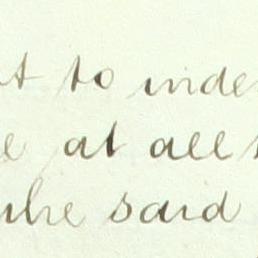 to inde
at all
the said